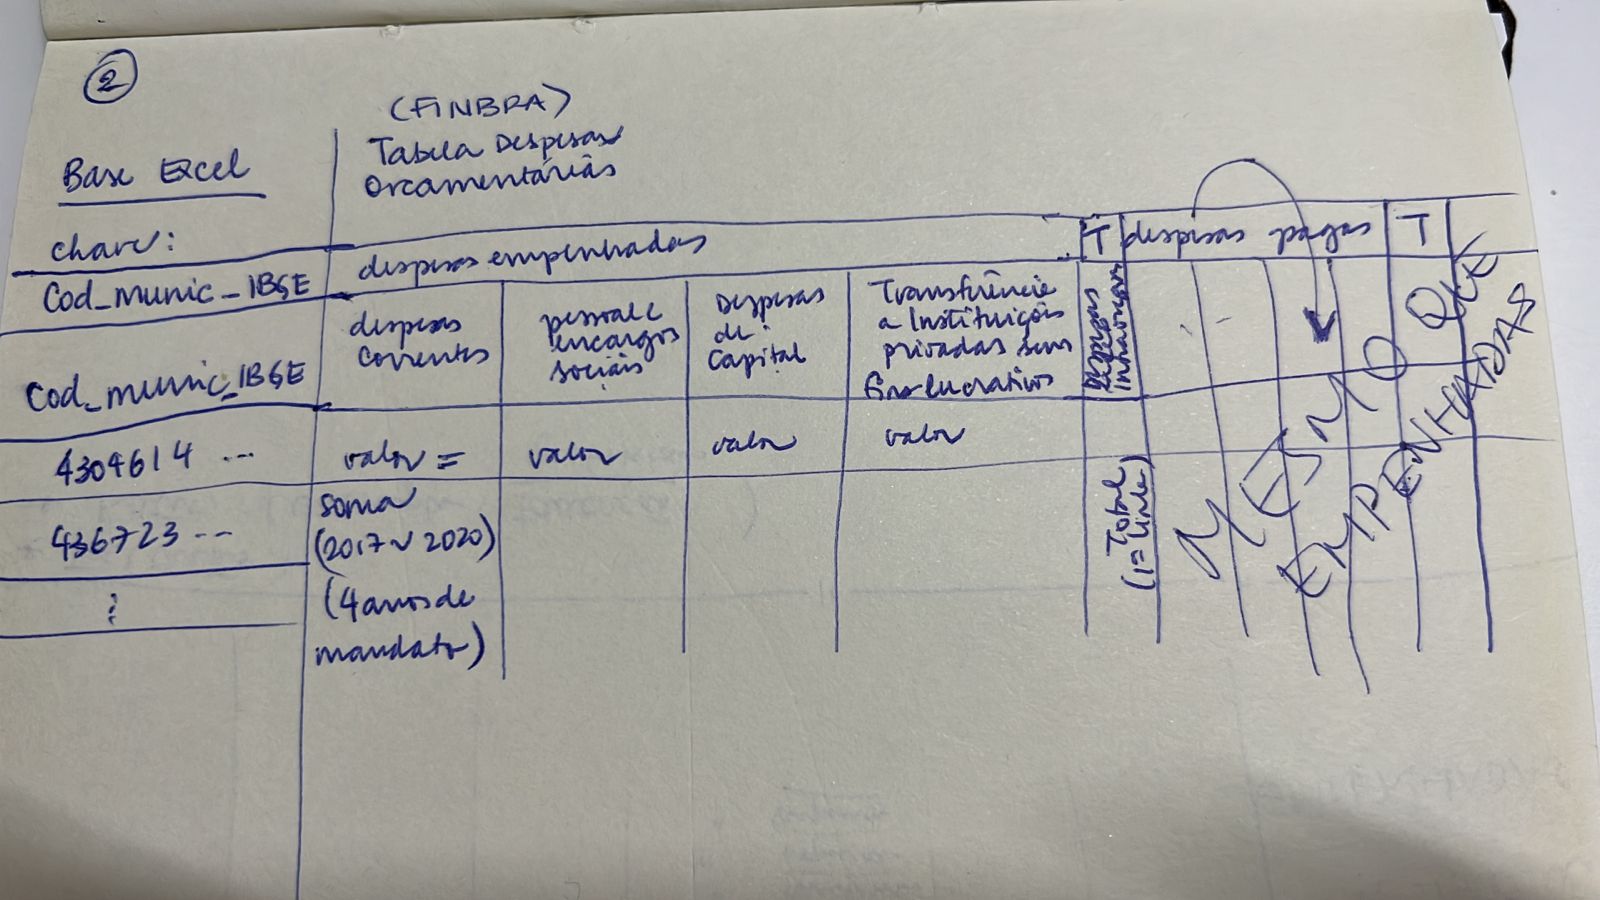 2
(FINBRA)
Base Excel
Tabela Despesas
Orcamentárias
chave:
Cod_munic_IBGE
despesas empenhadas
T
despesas pagas
T
Cod_munic_IBGE
despesas
correntes
pessoal e
encargos
sociais
Despesas
de
Capital
Transferência
a Instituições
privadas sem
fins lucrativos
Despesas
4304614 ...
valor =
valor
valor
valor
436723 --
soma
(2017 ~ 2020)
(4 anos de
mandato)
Total
(1= linha)
MESMO QUE
EMPENHADAS